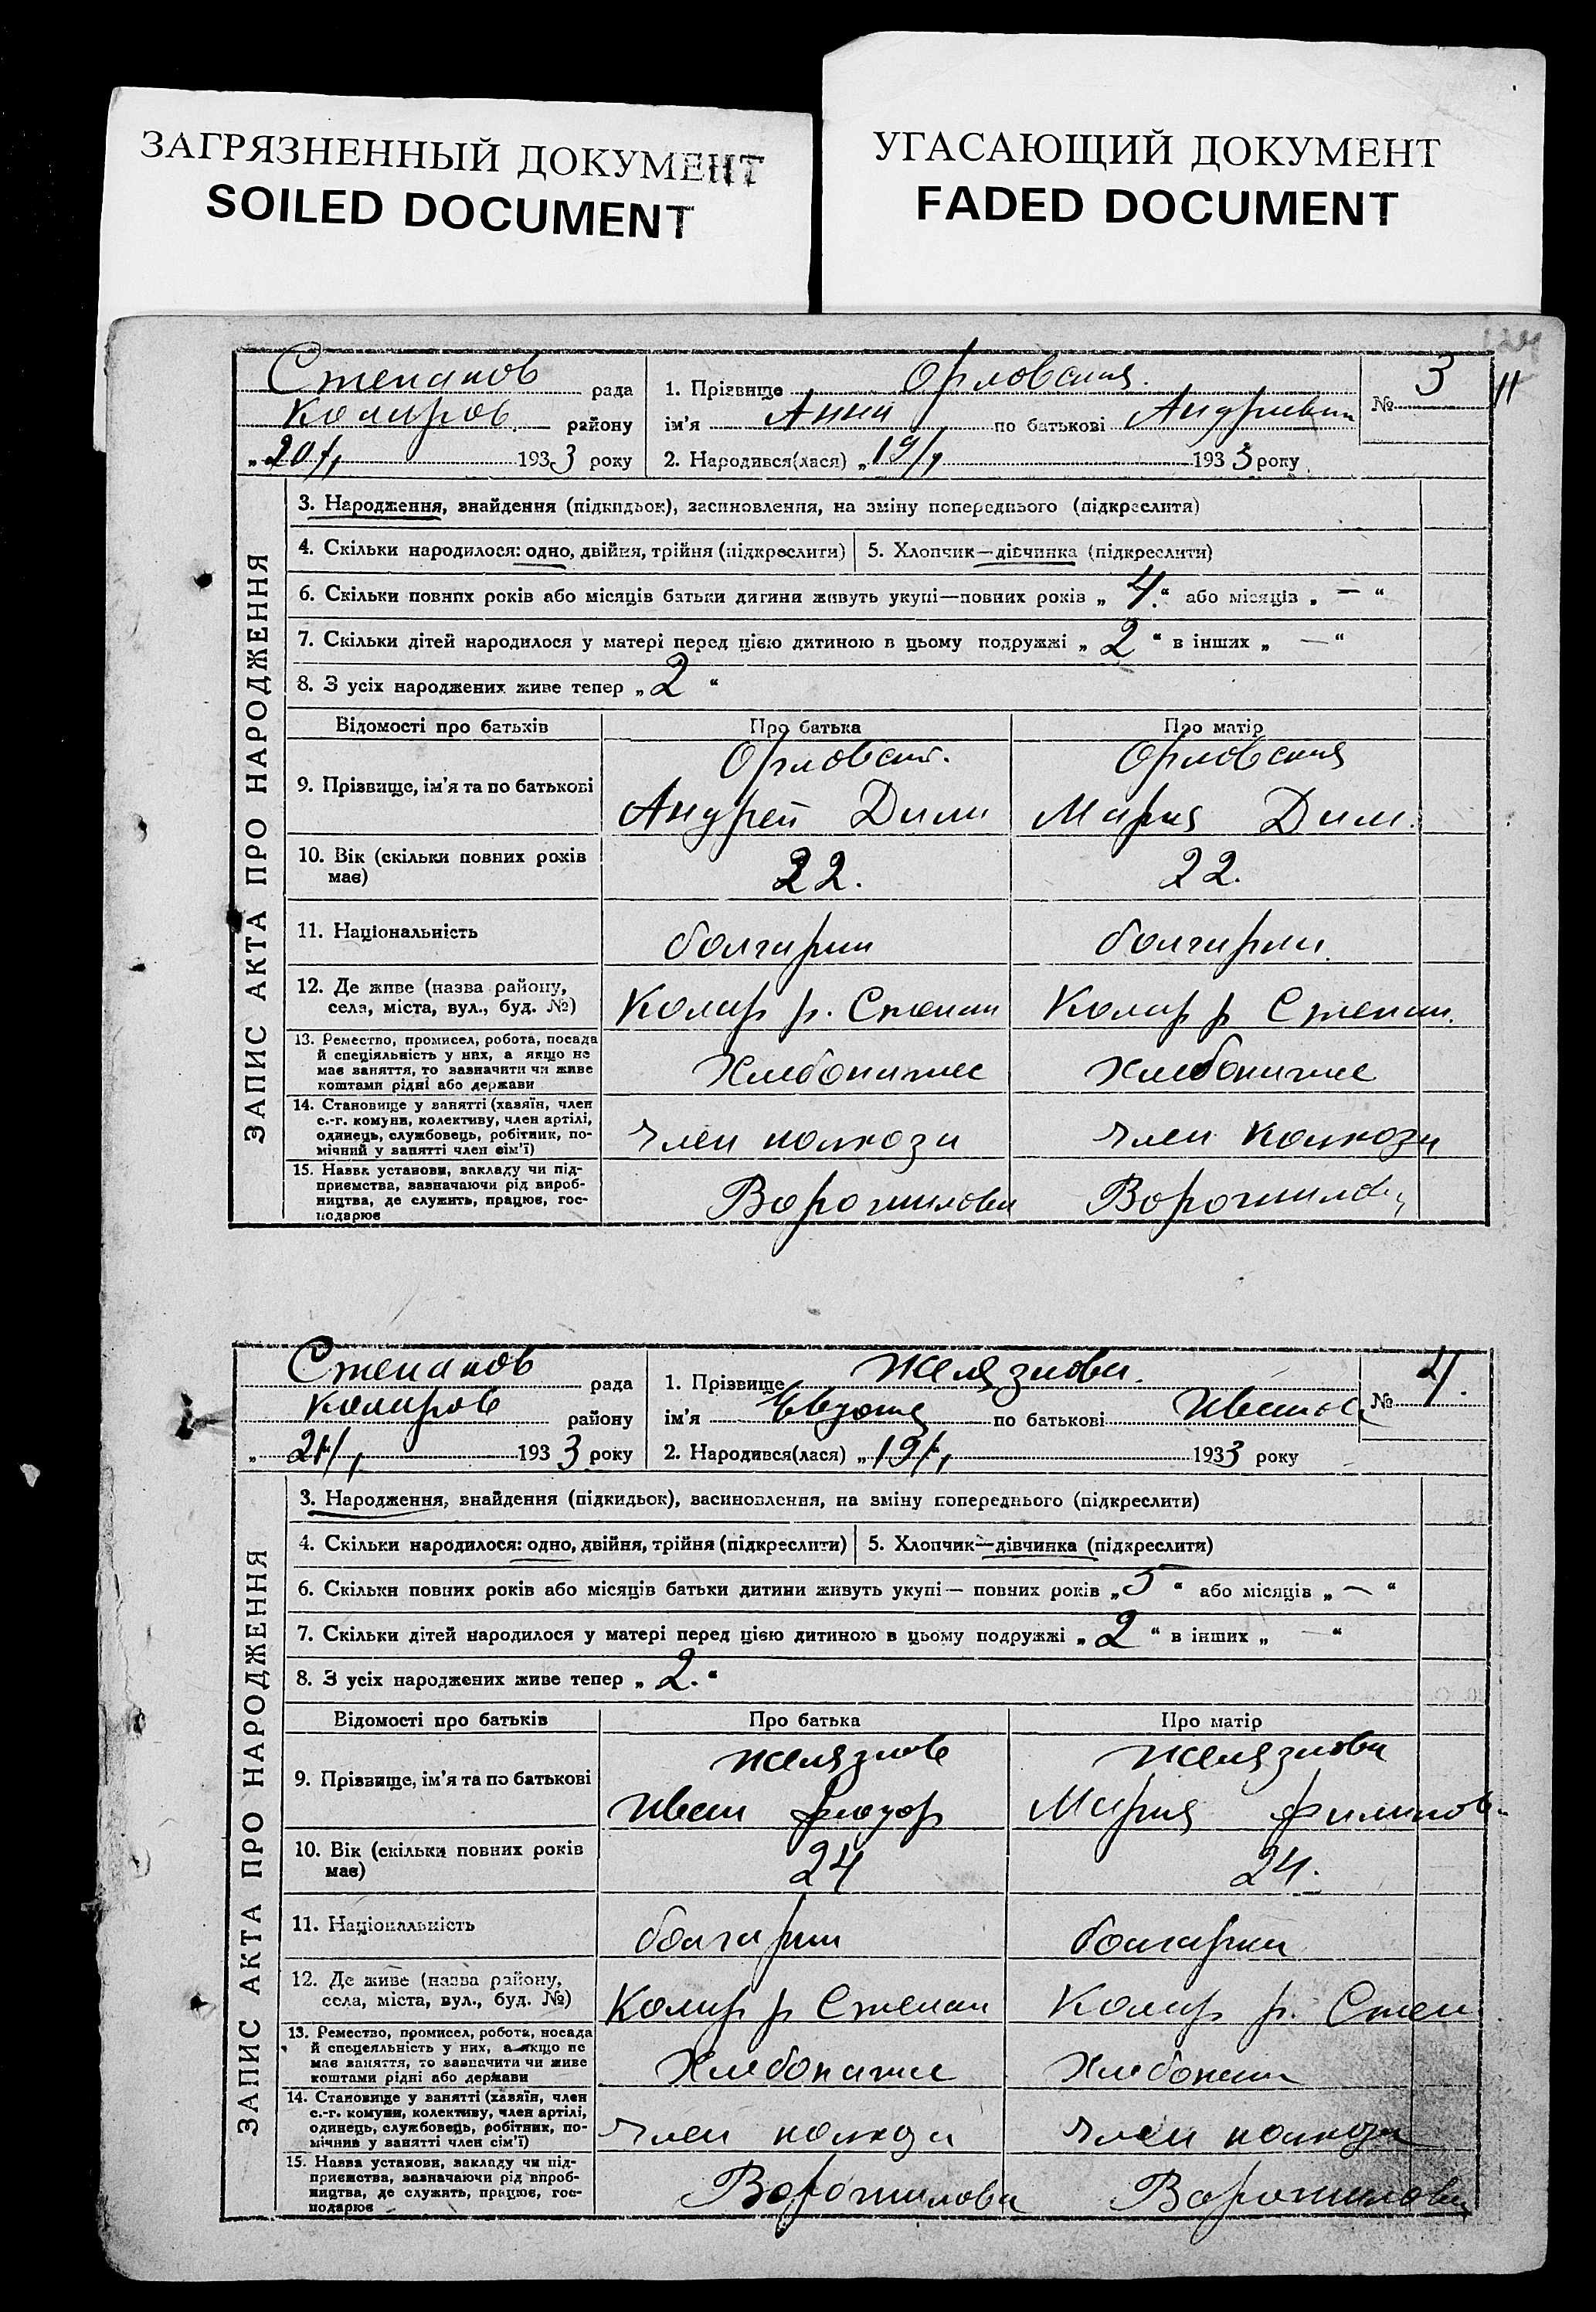 ЗАГРЯЗНЕННЫЙ ДОКУМЕНТ
SOILED DOCUMENT
УГАСАЮЩИЙ ДОКУМЕНТ
FADED DOCUMENT
ЗАПИС АКТА ПРО НАРОДЖЕННЯ
Степанов рада
Коларов. району
„20/I 1933 року
1. Прізвище Орловская.
ім'я Анна по батькові
2. Народився(лася) „19/I 1933 року
№ 3
11
3. Народження, знайдення (підкидьок), засиновлення, на зміну попереднього (підкреслити)
4. Скільки народилося: одно, двійня, трійня (підкреслити) 5. Хлопчик—дівчинка (підкреслити)
6. Скільки повних років або місяців батьки дитини живуть укупі—повних років „ 4. “ або місяців „ — “
7. Скільки дітей народилося у матері перед цією дитиною в цьому подружжі „ 2 “ в інших „ — “
8. З усіх народжених живе тепер „ 2 “
Відомості про батьків Про батька Про матір
9. Прізвище, ім'я та по батькові Орловский. Андрей Дими Орловская Мария Дим.
10. Вік (скільки повних років має) 22. 22.
11. Національність болгарин болгарка
12. Де живе (назва району, села, міста, вул., буд. №) Колар р. Степан Колар р Степан.
13. Ремество, промисел, робота, посада й спеціяльність у них, а якщо не має заняття, то зазначити чи живе коштами рідні або держави
14. Становище у занятті (хазяїн, член с.-г. комуни, колективу, член артілі, одинець, службовець, робітник, помічний у занятті член сім'ї) член колхоза член колхоза
15. Назва установи, закладу чи підприємства, зазначаючи рід виробництва, де служить, працює, господарює Ворошилова Ворошилова
ЗАПИС АКТА ПРО НАРОДЖЕННЯ
Степанов рада
Коларов району
„ 21/I 1933 року
1. Прізвище Желязнова.
ім'я по батькові
2. Народився(лася) „19/I 1933 року
№ 4.
3. Народження, знайдення (підкидьок), засиновлення, на зміну попереднього (підкреслити)
4. Скільки народилося: одно, двійня, трійня (підкреслити) 5. Хлопчик—дівчинка (підкреслити)
6. Скільки повних років або місяців батьки дитини живуть укупі — повних років „ 5 “ або місяців „ — “
7. Скільки дітей народилося у матері перед цією дитиною в цьому подружжі „ 2 “ в інших „ “
8. З усіх народжених живе тепер „ 2. “
Відомості про батьків Про батька Про матір
9. Прізвище, ім'я та по батькові Желязнов Иван Желязнова Мария Филипов.
10. Вік (скільки повних років має) 24 24.
11. Національність болгарин болгарка
12. Де живе (назва району, села, міста, вул., буд. №) Колар р Степан Колар р. Степ
13. Ремество, промисел, робота, посада й спецеяльність у них, а якщо не має заняття, то зазначити чи живе коштами рідні або держави
14. Становище у занятті (хазяїн, член с.-г. комуни, колективу, член артілі, одинець, службовець, робітник, помічнив у занятті член сім'ї) член колхоза член колхоза
15. Назва установи, закладу чи підприємства, зазначаючи рід виробництва, де служить, працює, господарює Ворошилова Ворошилова